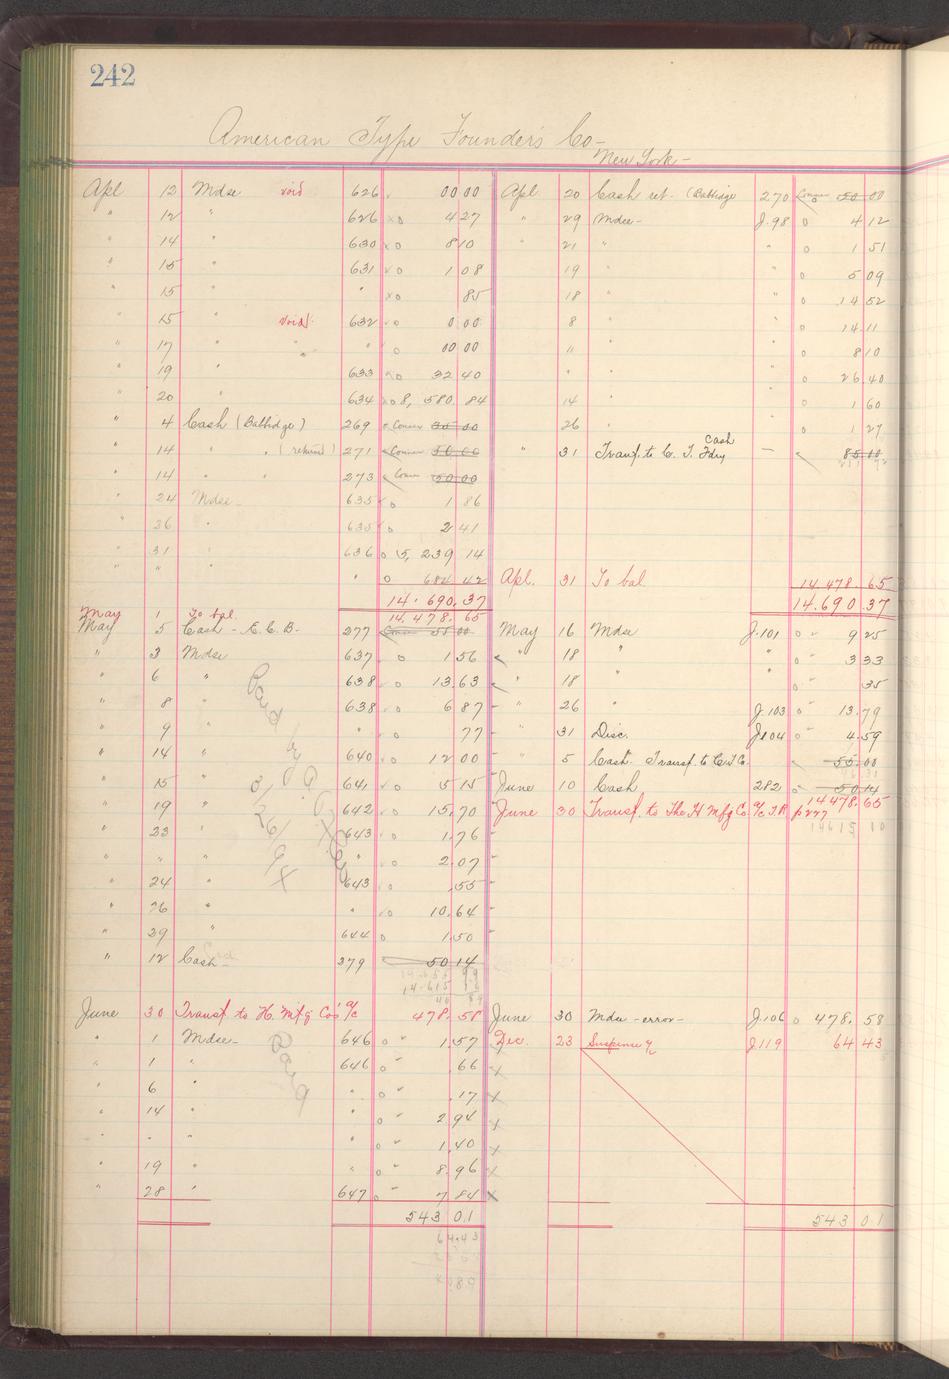 242
American Type Founders Co-
New York-
Apl 12 Mdse void 626 00 00
" 12 " 626 4 27
" 14 " 630 8 10
" 15 " 631 1 08
" 15 " " 85
" 15 " void 632 0 00
" 17 " " " 00 00
" 19 " 633 32 40
" 20 " 634 8,580 84
" 4 Cash (Battidge) 269 Conner 50 00
" 14 " " (returned) 271 Conner 50.00
" 14 " " 273 Conner 50.00
" 24 Mdse- 635 1 86
" 26 " 635 2 41
" 31 " 636 5,239 14
" " " 684 42
14.690.37
May 1 To bal. 14.478.65
May 5 Cash - E.C.B. 277 55 00
" 3 Mdse 637 1 56
" 6 " 638 13.63
" 8 " 638 6 87
" 9 " " 77
" 14 " 640 12 00
" 15 " 641 5 15
" 19 " 642 15.70
" 23 " 643 1.76
" " " " 2.07
" 24 " 643 .55
" 26 " " 10.64
" 29 " 644 1.50
" 12 Cash- 279 50 14
14.615
Paid by
June 30 Transf. to H. Mfg Co's a/c 478.58
" 1 Mdse- 646 1.57
" 1 " 646 .66
" 6 " " .17
" 14 " " 2.94
" " " " 1.40
" 19 " " 8.96
" 28 " 647 7.84
Paid
543 01
64.43
Apl 20 Cash ret. (Battidge 270 Conner 50 00
" 29 Mdse- J.98 4 12
" 21 " " 1 51
19 " " 5 09
18 " " 14 52
8 " " 14 11
" " " 8 10
" " " 26 40
14 " " 1 60
26 " 1 27
" 31 Transf. to C. T. Fdry Cash - 85 00
Apl. 31 To bal 14 478.65
14.690 37
May 16 Mdse J.101 9 25
" 18 " " 3 33
" 18 " " 35
" 26 J.103 13.79
" 31 Disc. J104 4.59
" 5 Cash. Transf. to C.T.Co. 55.00
June 10 Cash 282 50 14
June 30 Transf. to The H Mfg Co. a/c p 227 14478.65
14615 10
June 30 Mdse -error- J.106 478.58
Dec. 23 Suspense a/c J119 64 43
543 01